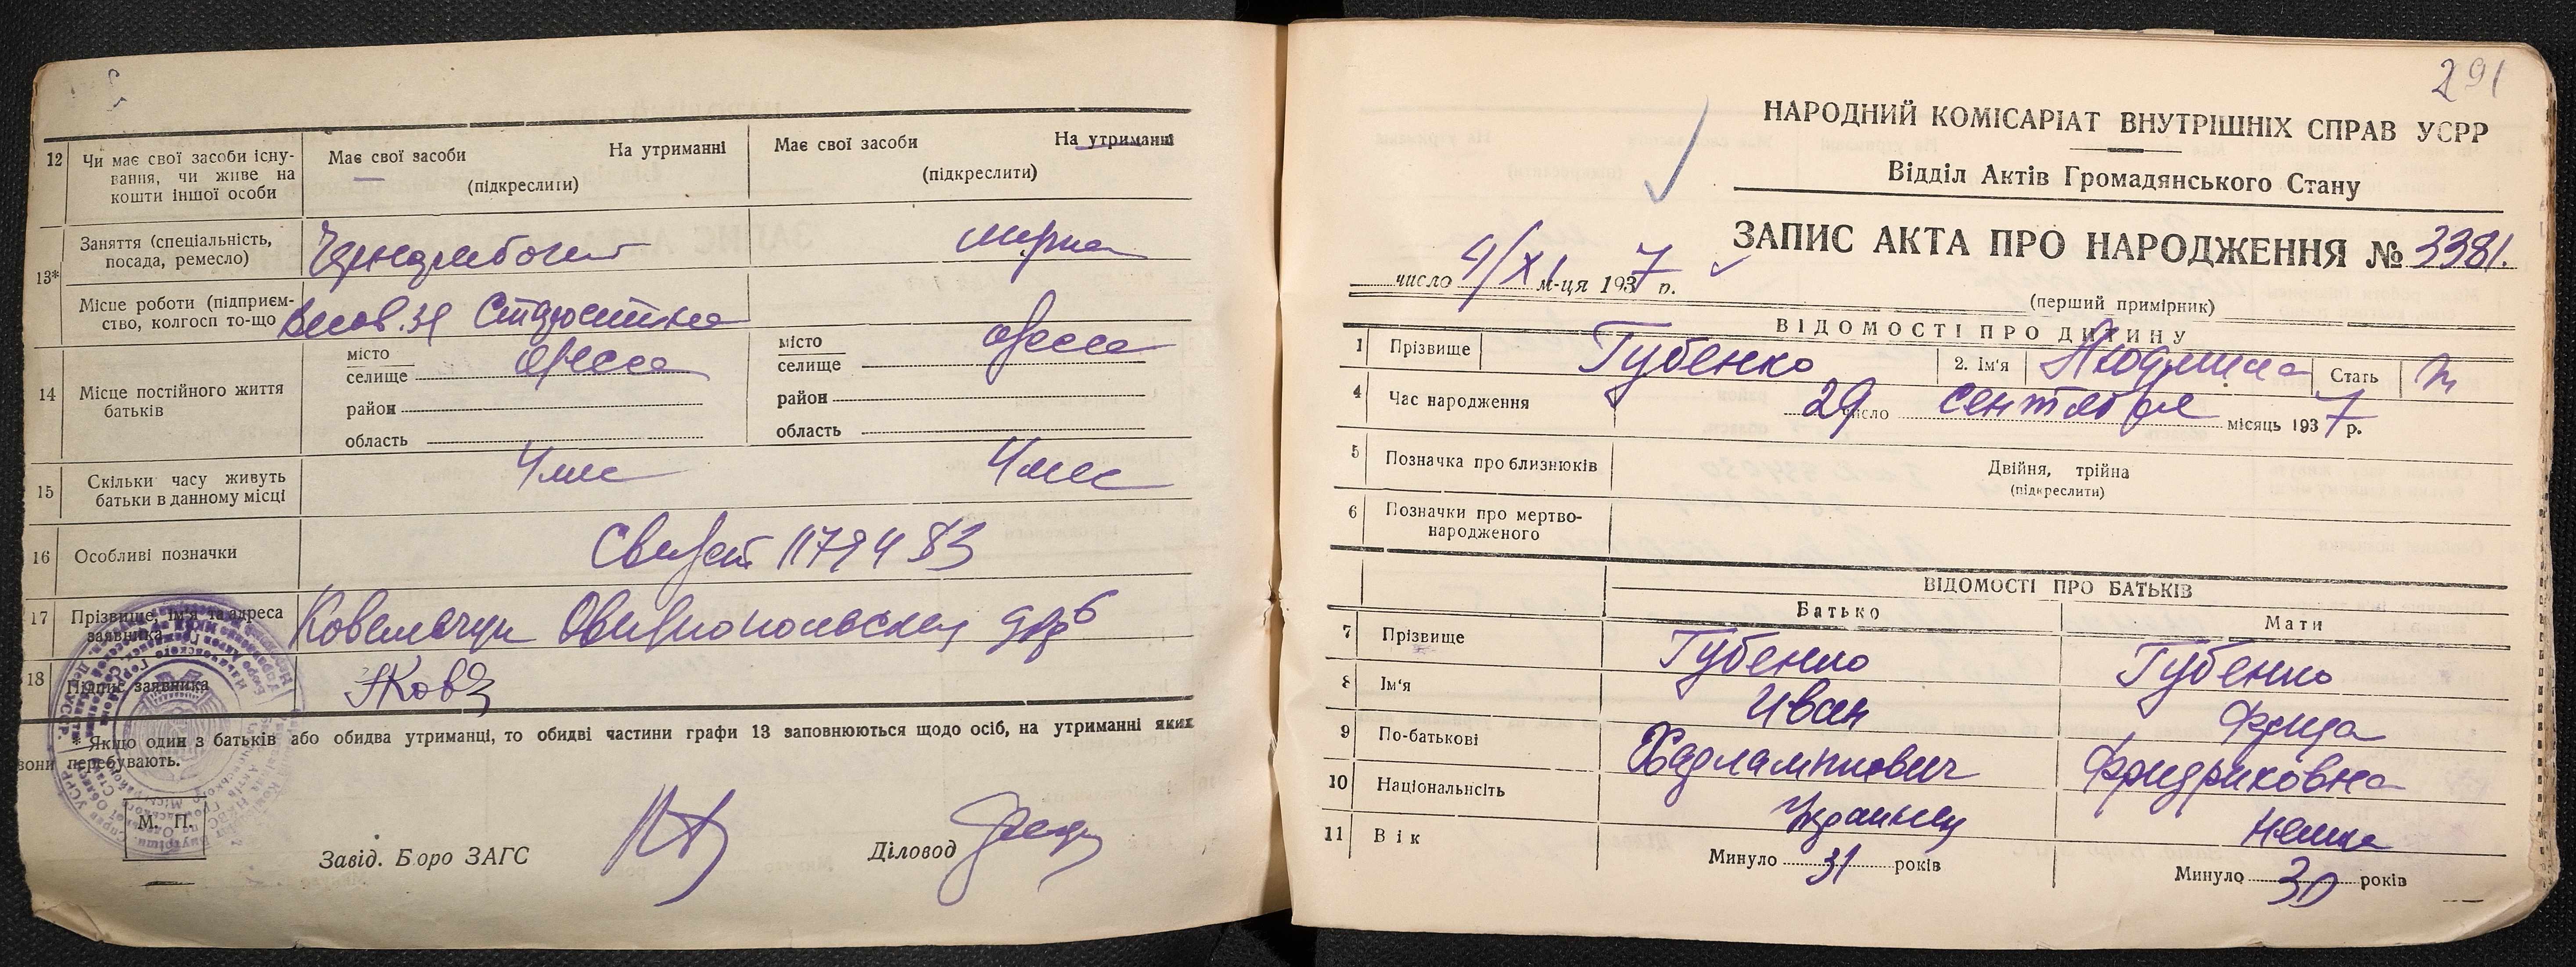 12 Чи має свої засоби існу-
вання, чи живе на
кошти іншої особи
Має свої засоби На утриманні
(підкреслити)
Має свої засоби На утриманні
(підкреслити)
13* Заняття (спеціальність,
посада, ремесло)
Чернорабочий
Місце роботи (підприєм-
ство, колгосп то-що
14 Місце постійного життя
батьків
місто
селище Одесса
район
область
місто
селище Одесса
район
область
15 Скільки часу живуть
батьки в данному місці
4 мес 4 мес
16 Особливі позначки
Свидет 1179483
17 Прізвище, ім'я та адреса
заявника
Овидиопольская
18 Підпис заявника
* Якщо один з батьків або обидва утриманці, то обидві частини графи 13 заповнюються щодо осіб, на утриманні яких
вони перебувають.
М. П.
Завід. Бюро ЗАГС Діловод
291
НАРОДНИЙ КОМІСАРІАТ ВНУТРІШНІХ СПРАВ УСРР
Відділ Актів Громадянського Стану
ЗАПИС АКТА ПРО НАРОДЖЕННЯ № 3381.
число 4/XI м-ця 1937 р.
(перший примірник)
ВІДОМОСТІ ПРО ДИТИНУ
1 Прізвище Губенко 2. Ім'я Людмила Стать
4 Час народження 29 число сентября місяць 1937 р.
5 Позначка про близнюків Двійня, трійна
(підкреслити)
6 Позначки про мертво-
народженого
ВІДОМОСТІ ПРО БАТЬКІВ
Батько Мати
7 Прізвище Губенко Губенко
8 Ім'я Иван Фрида
9 По-батькові Харлампиович Фридриковна
10 Національність Украинец Немка
11 Вік Минуло 31 років Минуло 30 років